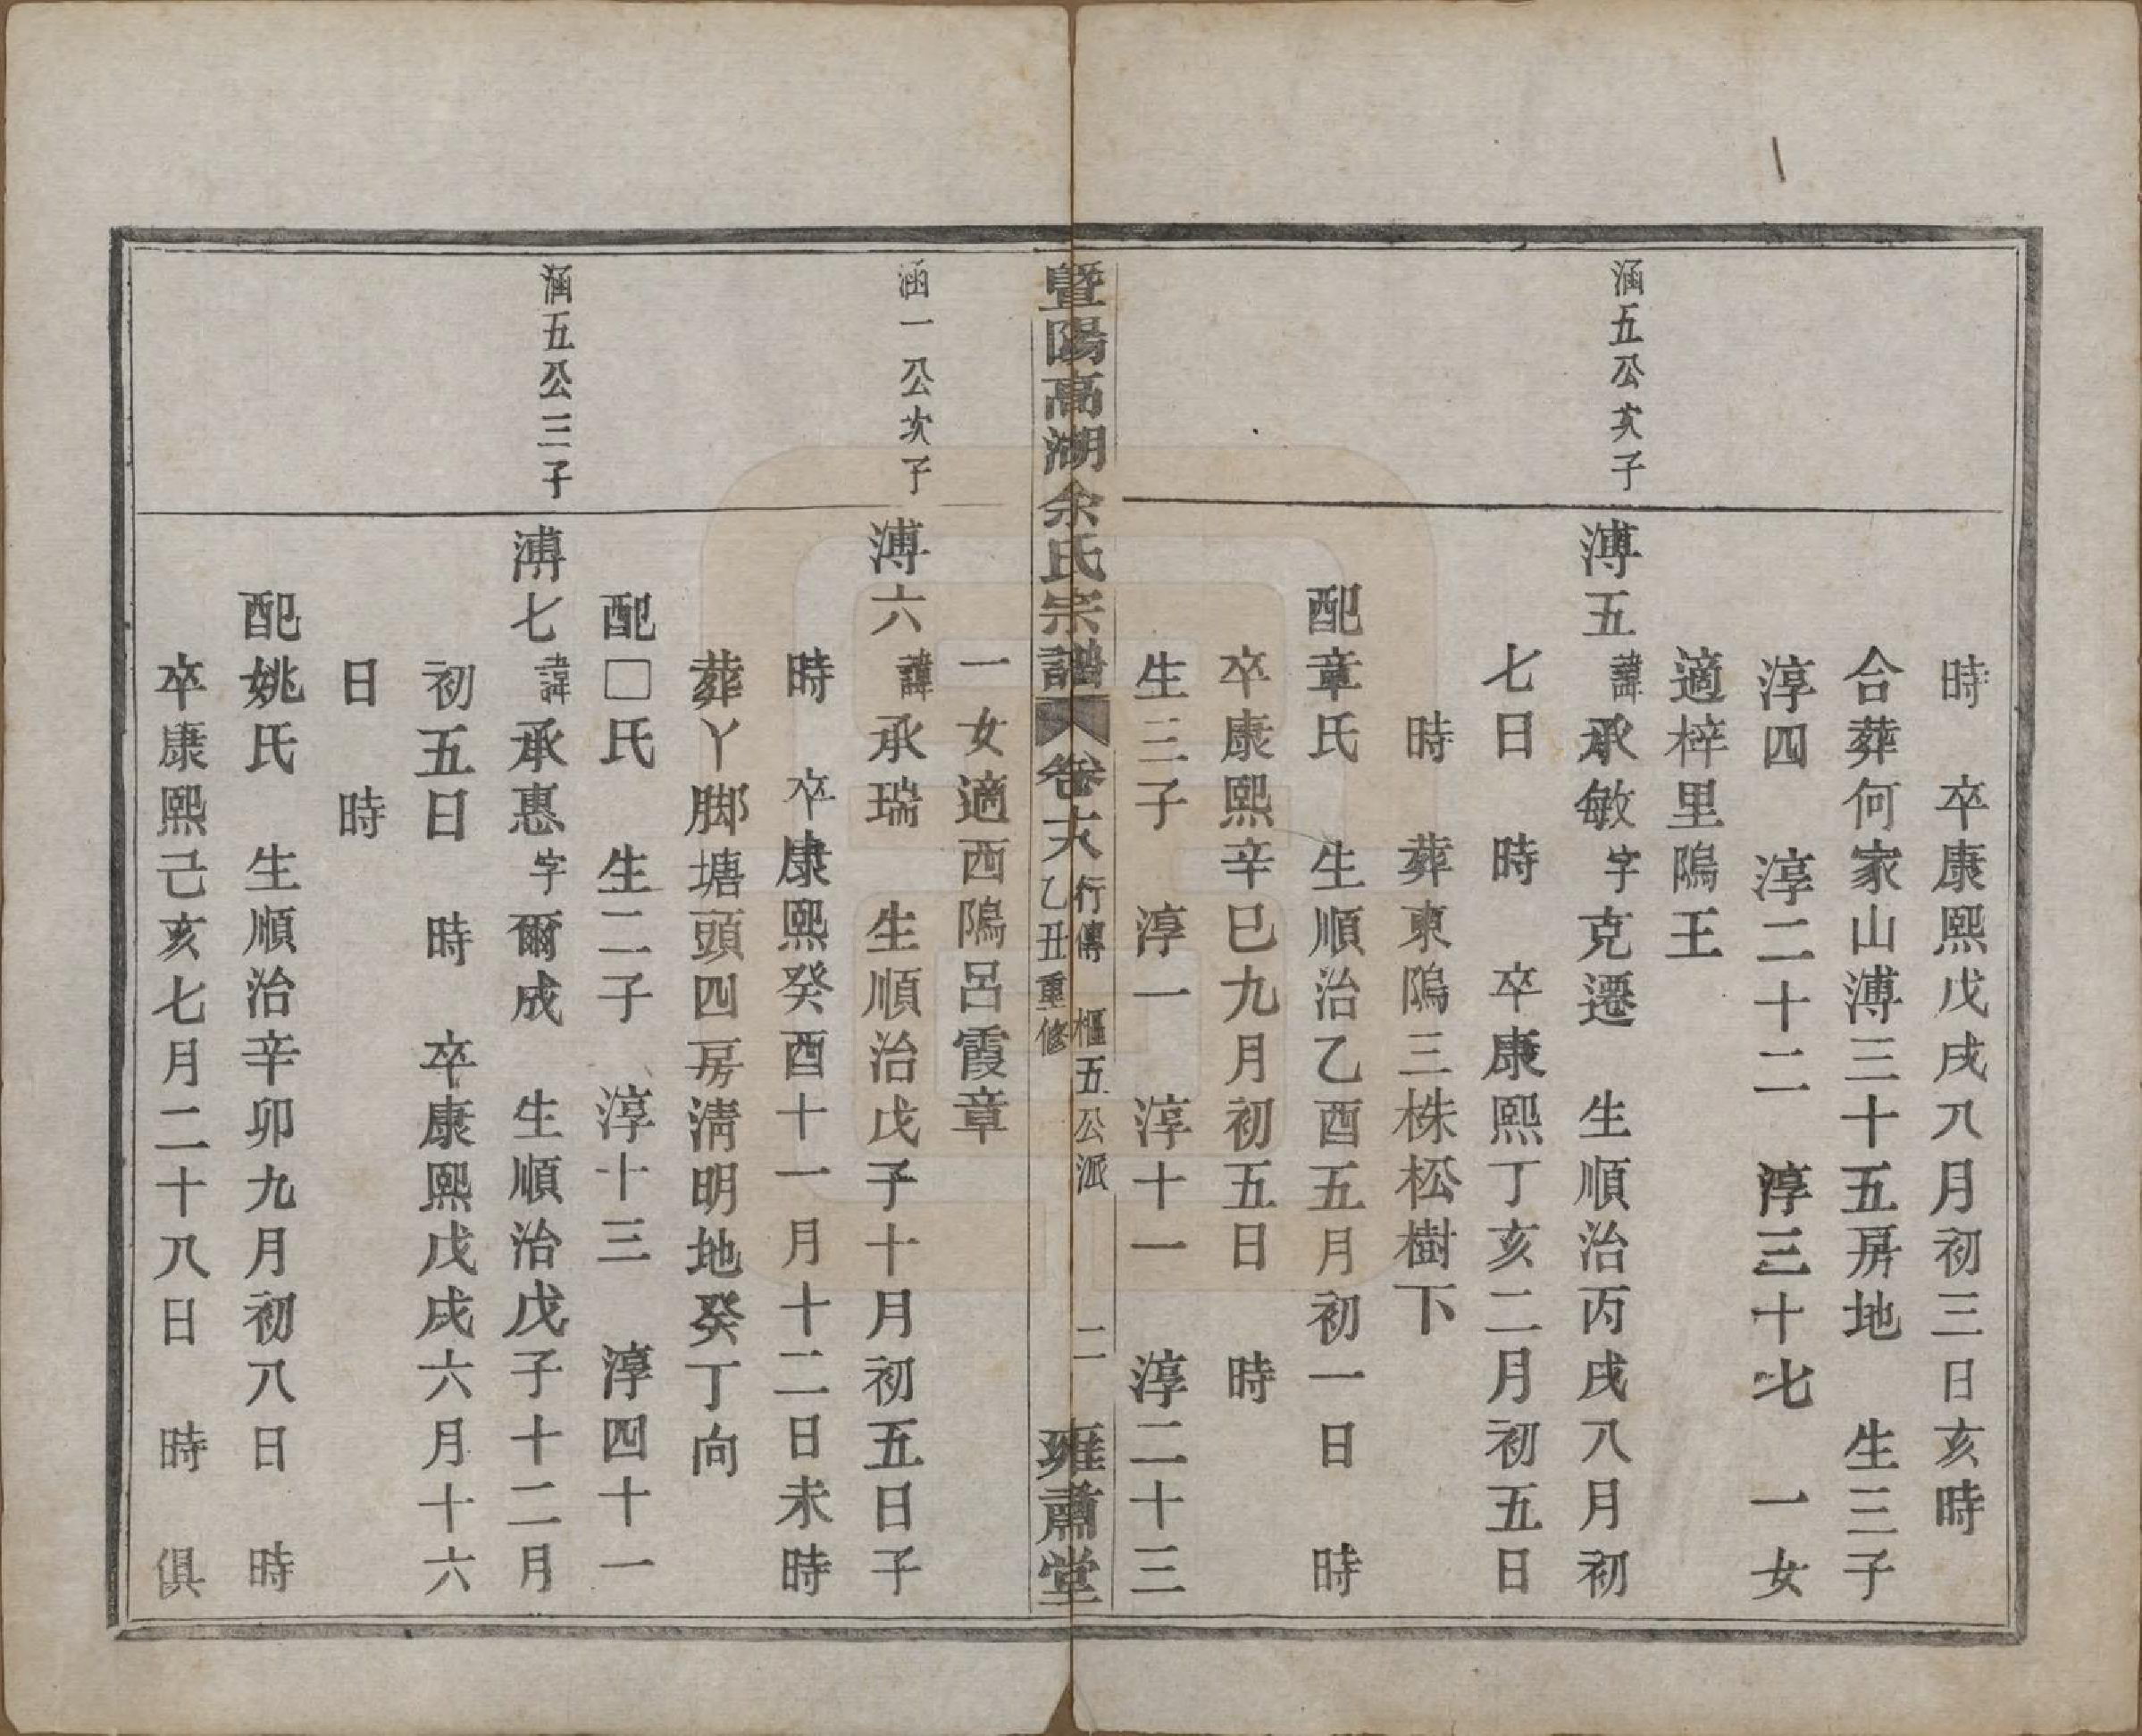 時　卒康熙戊戌八月初三日亥時
合葬何家山溥三十五房地　生三子
淳四　淳二十二　淳三十七　一女
適梓里隖王
涵五公次子
溥五諱承敏字克遷　生順治丙戌八月初
七日　時　卒康熙丁亥二月初五日
時　葬東隖三株松樹下
配章氏　生順治乙酉五月初一日　時
卒康熙辛巳九月初五日　時
生三子　淳一　淳十一　淳二十三
暨陽高湖余氏宗譜　卷十八　行傳　樞五公派　乙丑重修　二　雍肅堂
一女適西隖呂霞章
涵一公次子
溥六諱承瑞　生順治戊子十月初五日子
時　卒康熙癸酉十一月十二日未時
葬丫脚塘頭四房清明地癸丁向
配□氏　生二子　淳十三　淳四十一
涵五公三子
溥七諱承惠字爾成　生順治戊子十二月
初五日　時　卒康熙戊戌六月十六
日　時
配姚氏　生順治辛卯九月初八日　時
卒康熙己亥七月二十八日　時　俱